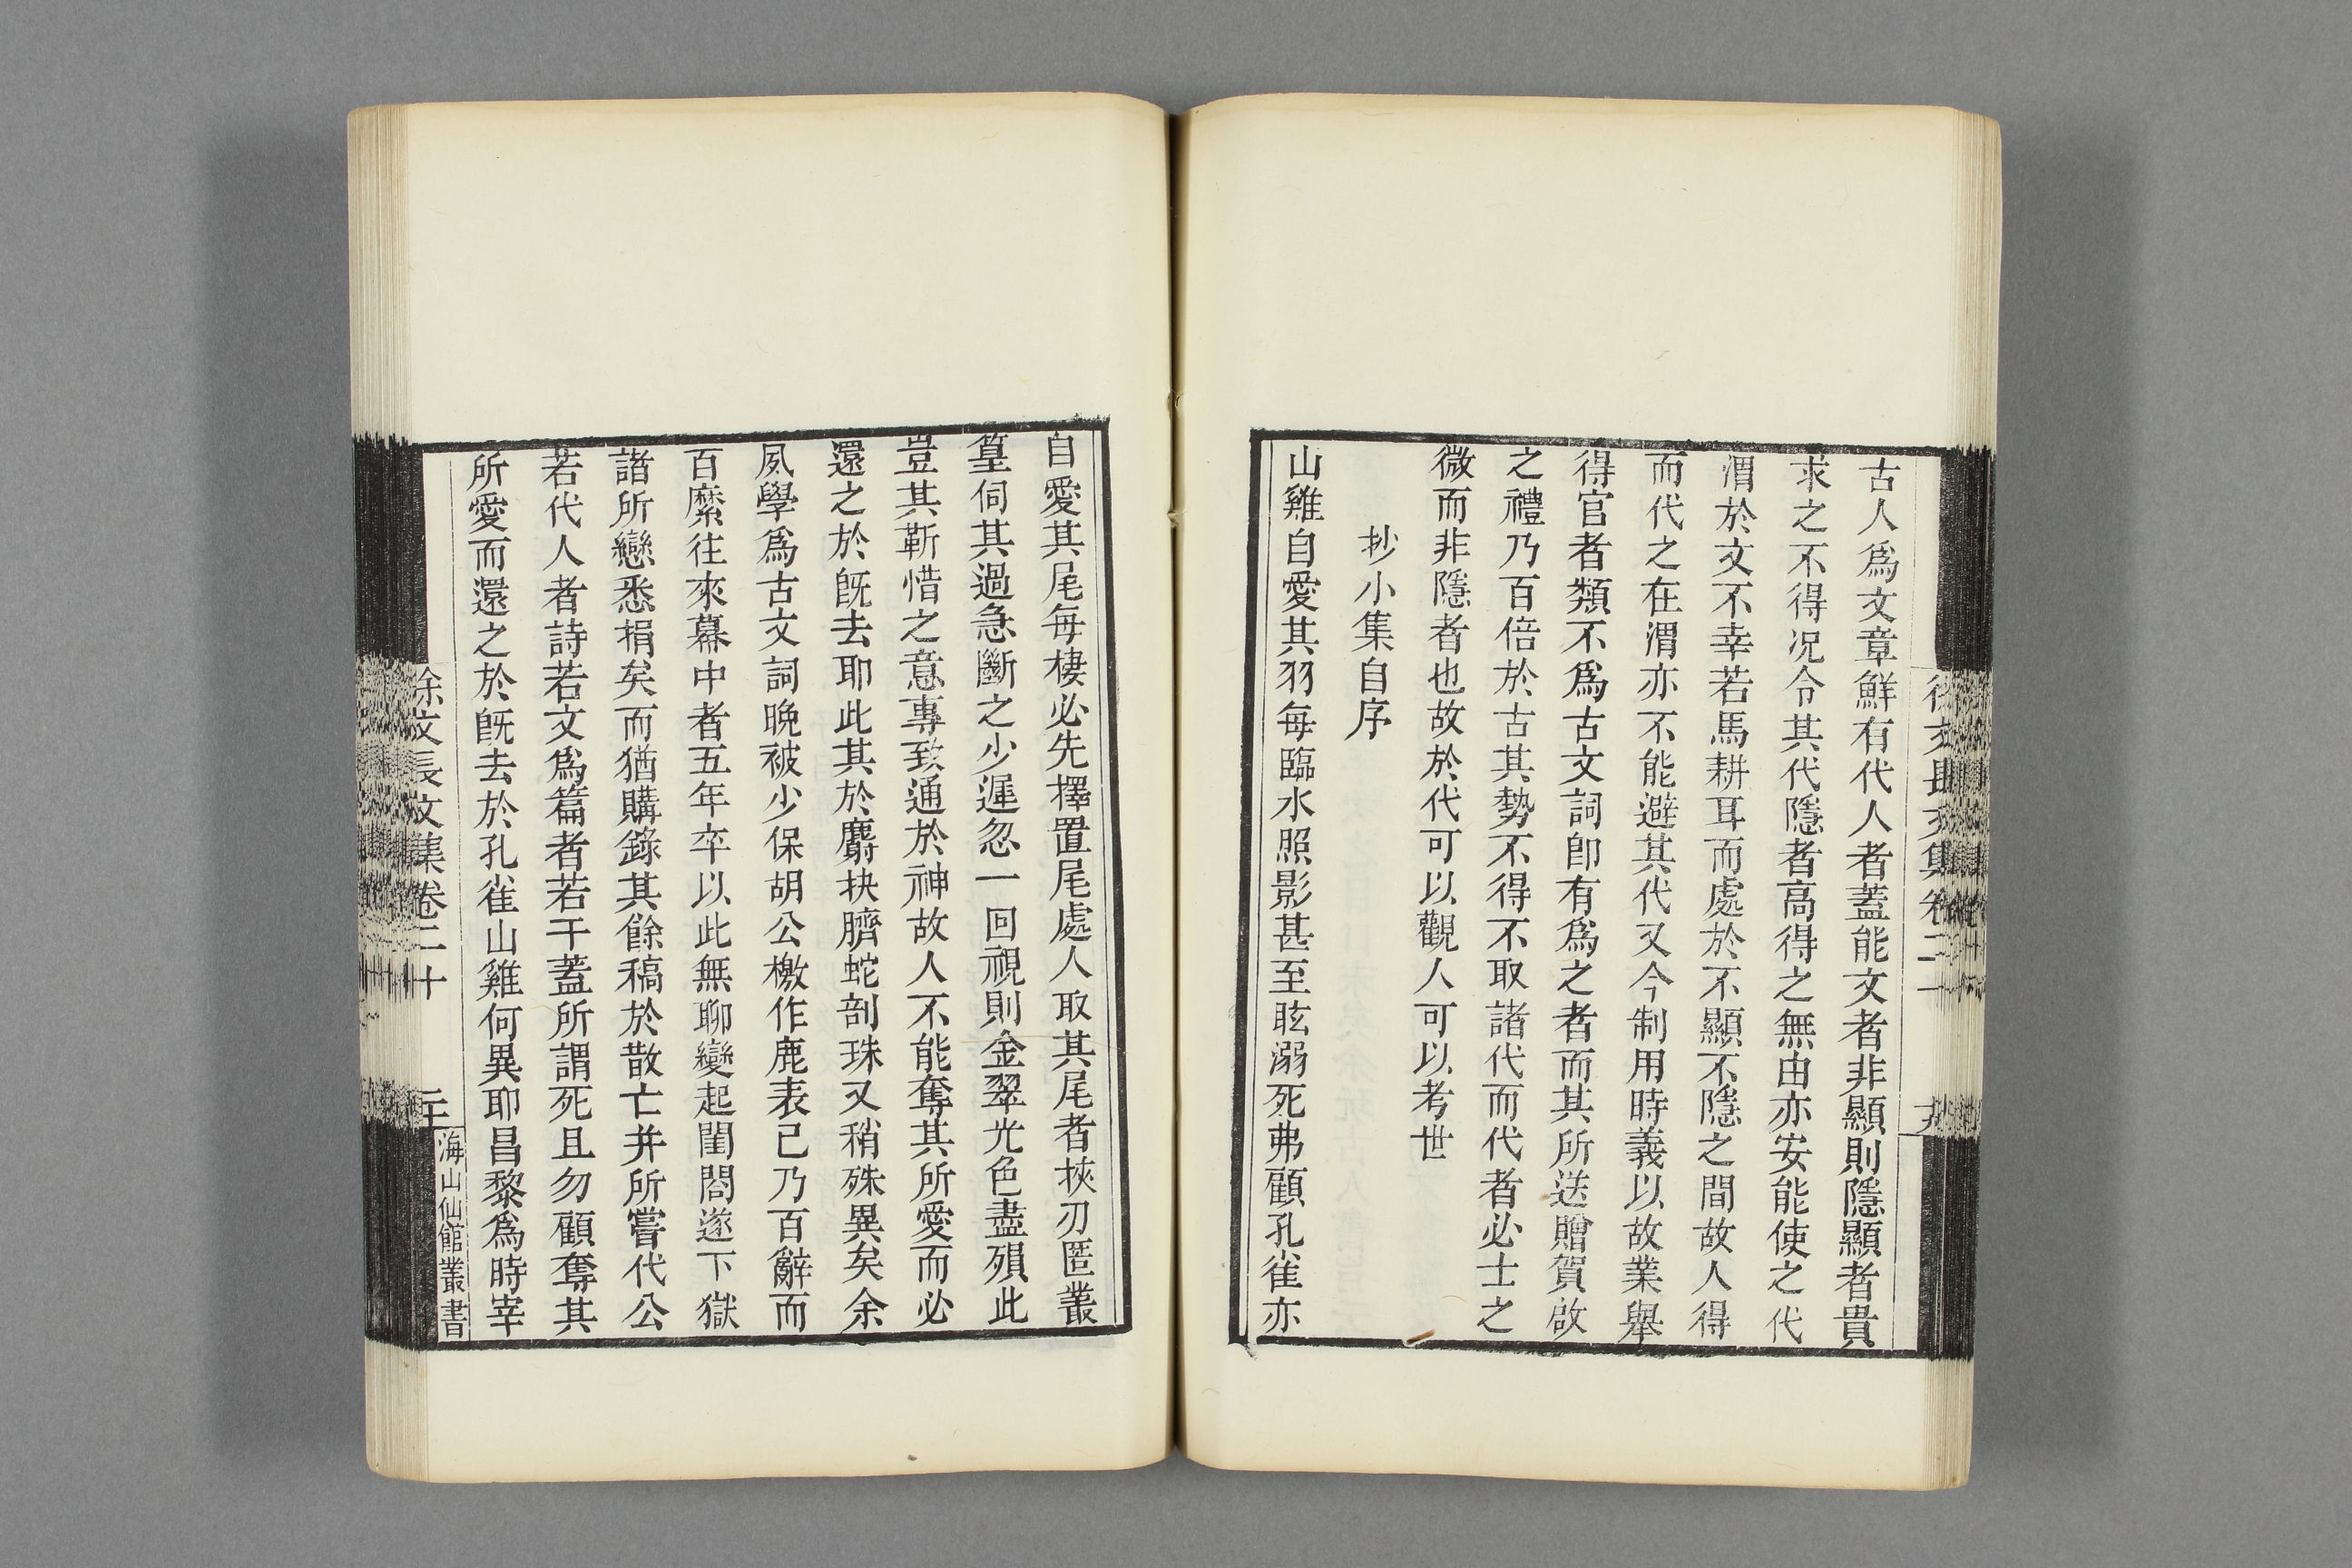 古人爲文章鮮有代人者蓋能文者非顯則隱顯者貴
求之不得况令其代隱者高得之無由亦安能使之代
渭於文不幸若馬耕耳而處於不顯不隱之間故人得
而代之在渭亦不能避其代又今制用時義以故業舉
得官者類不爲古文詞卽有爲之者而其所送贈賀啟
之禮乃百倍於古其勢不得不取諸代而代者必士之
微而非隱者也故於代可以觀人可以考世
抄小集自序
山雞自愛其羽每臨水照影甚至眩溺死弗顧孔雀亦
自愛其尾每棲必先擇置尾處人取其尾者挾刃匿叢
篁伺其過急斷之少遲忽一回視則金翠光色盡殞此
豈其靳惜之意專致通於神故人不能奪其所愛而必
還之於旣去耶此其於麝抉臍蛇剖珠又稍殊異矣余
夙學爲古文詞晩被少保胡公檄作鹿表已乃百辭而
百縻往來幕中者五年卒以此無聊變起閨閤遂下獄
諸所戀悉捐矣而猶購錄其餘稿於散亡并所嘗代公
若代人者詩若文爲篇者若干蓋所謂死且勿顧奪其
所愛而還之於旣去於孔雀山雞何異耶昌黎爲時宰
徐文長文集卷二十
海山仙館叢書